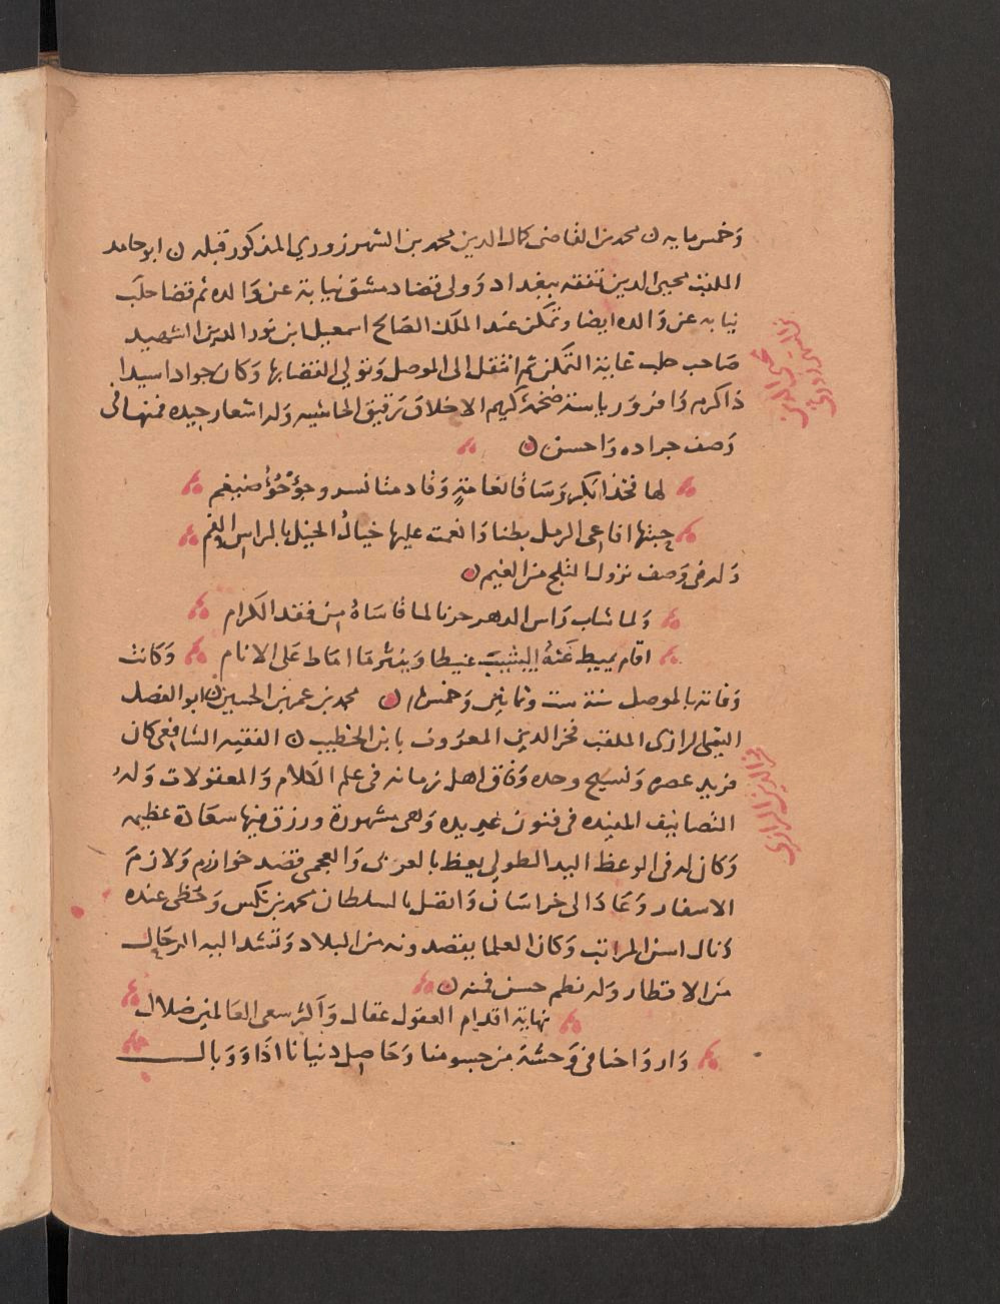 وخمس مايه ن محمد بن القاضى كمال الدين محمد بن الشهرزوري المذكور قبله ن ابو حامد
الملقب محيى الدين تفقه ببغداد وولى قضا دمشق نيابة عن والده ثم قضا حلب
نيابه عن والده ايضا وتمكن عند الملك الصالح اسمعيل ابن نور الدين الشهيد
صاحب حلب غاية التمكن ثم انتقل الى الموصل وتولي القضا بها وكان جوادا سيدا
ذا كرم وافر ورياسة ضخمة كريم الاخلاق رقيق الحاشيه وله اشعار جيده فمنها فى
وصف جراده واحسن ن
لها فخذا بكر وساقا نعامة وقادمتا نسر وجؤجؤ ضيغم
حبتها افاعى الرمل بطنا وانعمت عليها خيال الخيل بالراس والفم
وله فى وصف نزول الثلج من الغيم ن
ولما شاب راس الدهر حزنا لما قاساه من فقد الكرام
اقام يميط عنه الشيب غيظا وينثر ما اماط على الانام وكانت
وفاته بالموصل سنة ست وثمانين وخمس م ن محمد بن عمر بن الحسين ن ابو الفضل
التيمى الرازى الملقب فخر الدين المعروف بابن الخطيب ن الفقيه الشافعى كان
فريد عصره ونسيج وحده وفاق اهل زمانه فى علم الكلام والمعقولات وله
التصانيف المفيده فى فنون عديده وهى مشهورة ورزق فيها سعادة عظيمه
وكان له فى الوعظ اليد الطولي يعظ بالعربى والعجمى قصد خوارزم ولازم
الاسفار وعاد الى خراسان واتصل بالسلطان محمد بن تكس وحظى عنده
ونال اسنى المراتب وكان العلما يقصدونه من البلاد وتشد اليه الرحال
من الاقطار وله نظم حسن فمنه ن
نهاية اقدام العقول عقال واكثر سعى العالمين ضلال
وارواحنا فى وحشة من جسومنا وحاصل دنيانا اذا ووبال
محيى الدين
الشهرزورى
فخر الدين الرازى